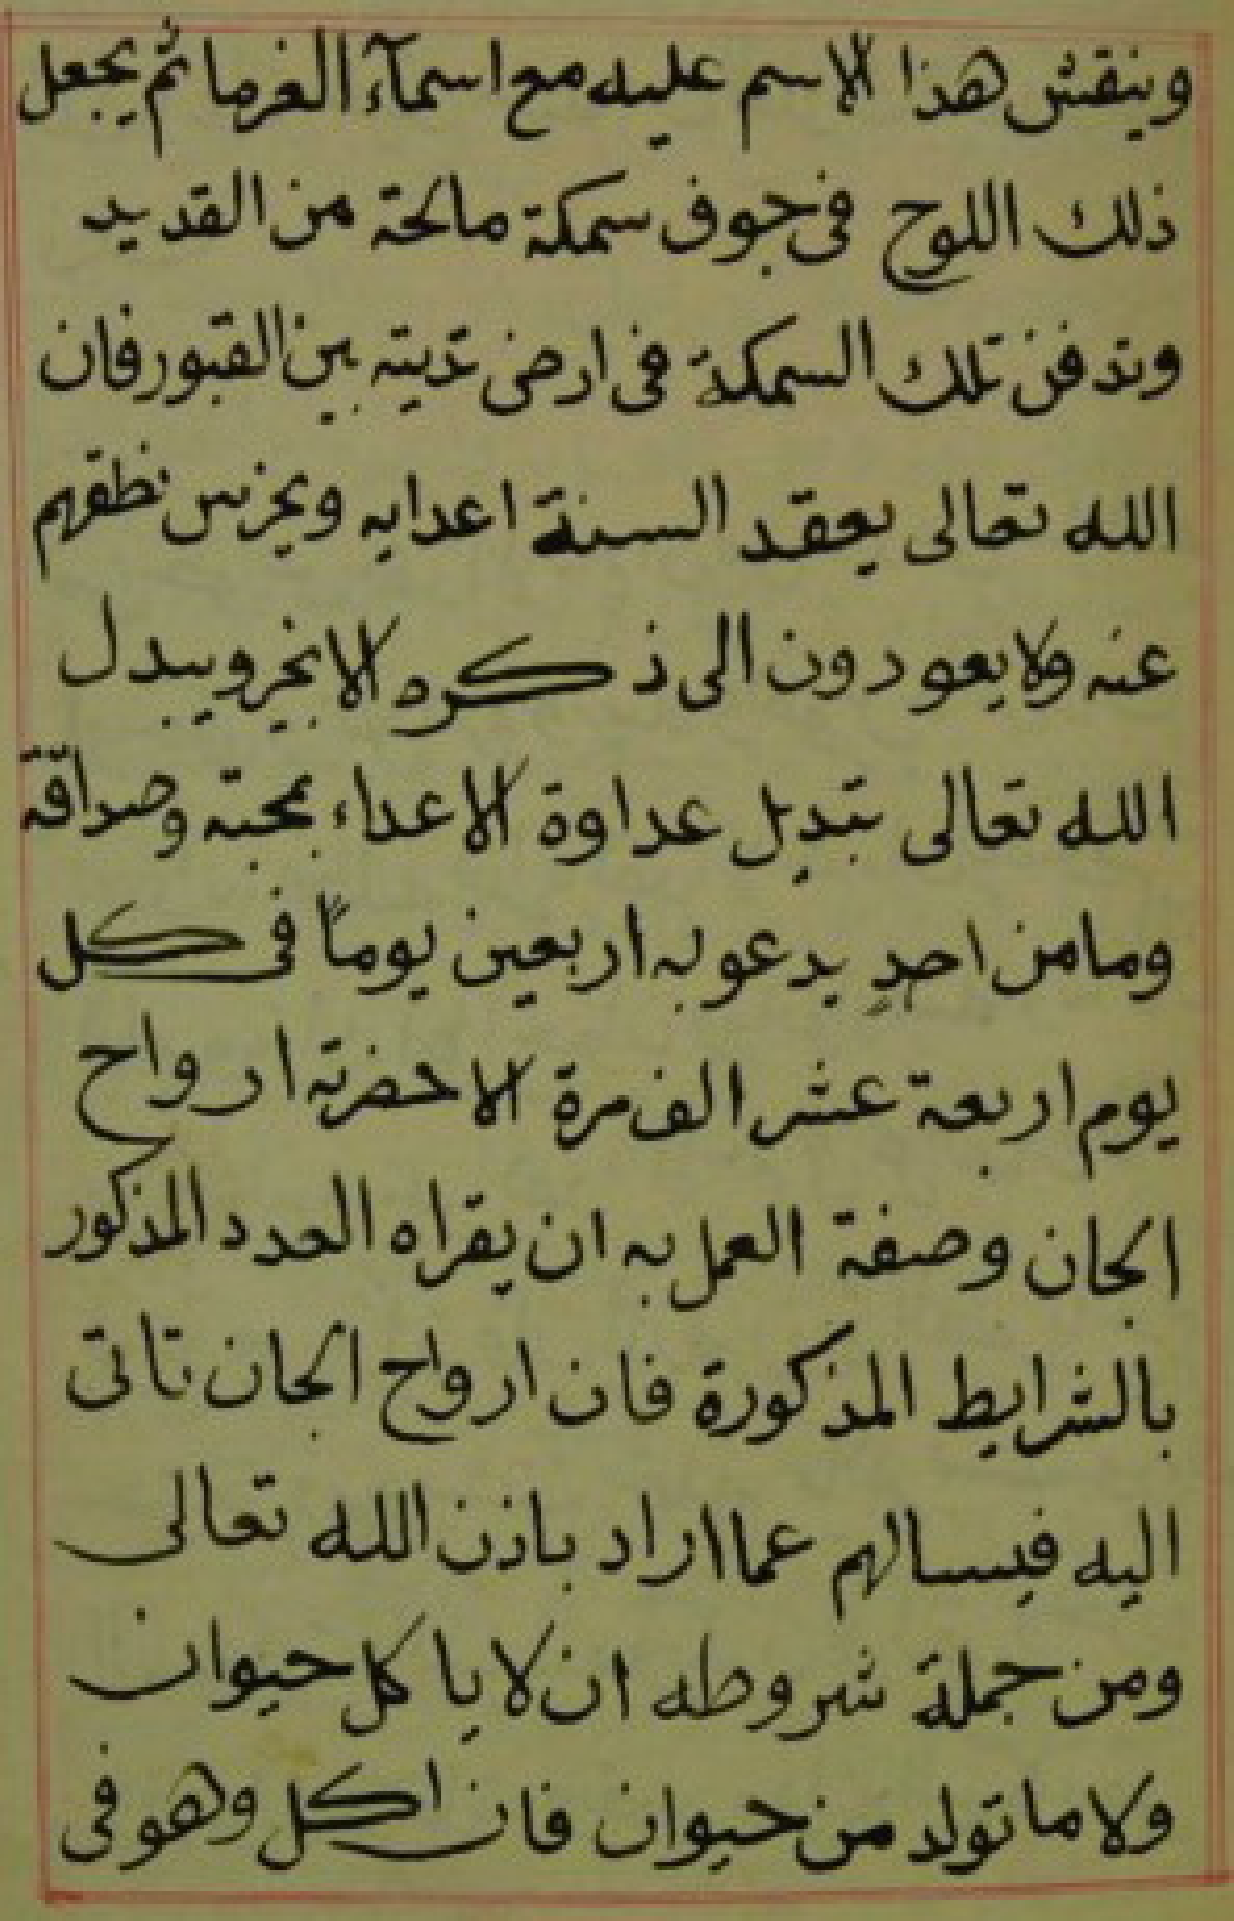 وينقش هذا الاسم عليه مع اسمآء الغرما ثم يجعل
ذلك اللوح فى جوف سمكة مالحة من القديد
وتدفن تلك السمكة فى ارض نديته بين القبور فان
الله تعالى يعقد السنة اعدايه ويخرس نطقهم
عنه ولا يعودون الى ذكره الا بخير ويبدل
الله تعالى بتديل عداوة الاعداء بمحبته وصداقة
وما من احدٍ يدعو به اربعين يوماً فى كل
يوم اربعة عشر الف مرة الا حضرته ارواح
الجان وصفة العمل به ان يقراه العدد المذكور
بالشرايط المذكورة فان ارواح الجان تاتى
اليه فيسالهم عما اراد باذن الله تعالى
ومن جملة شروطه ان لا ياكل حيوان
ولا ما تولد من حيوان فان اكل وهو فى